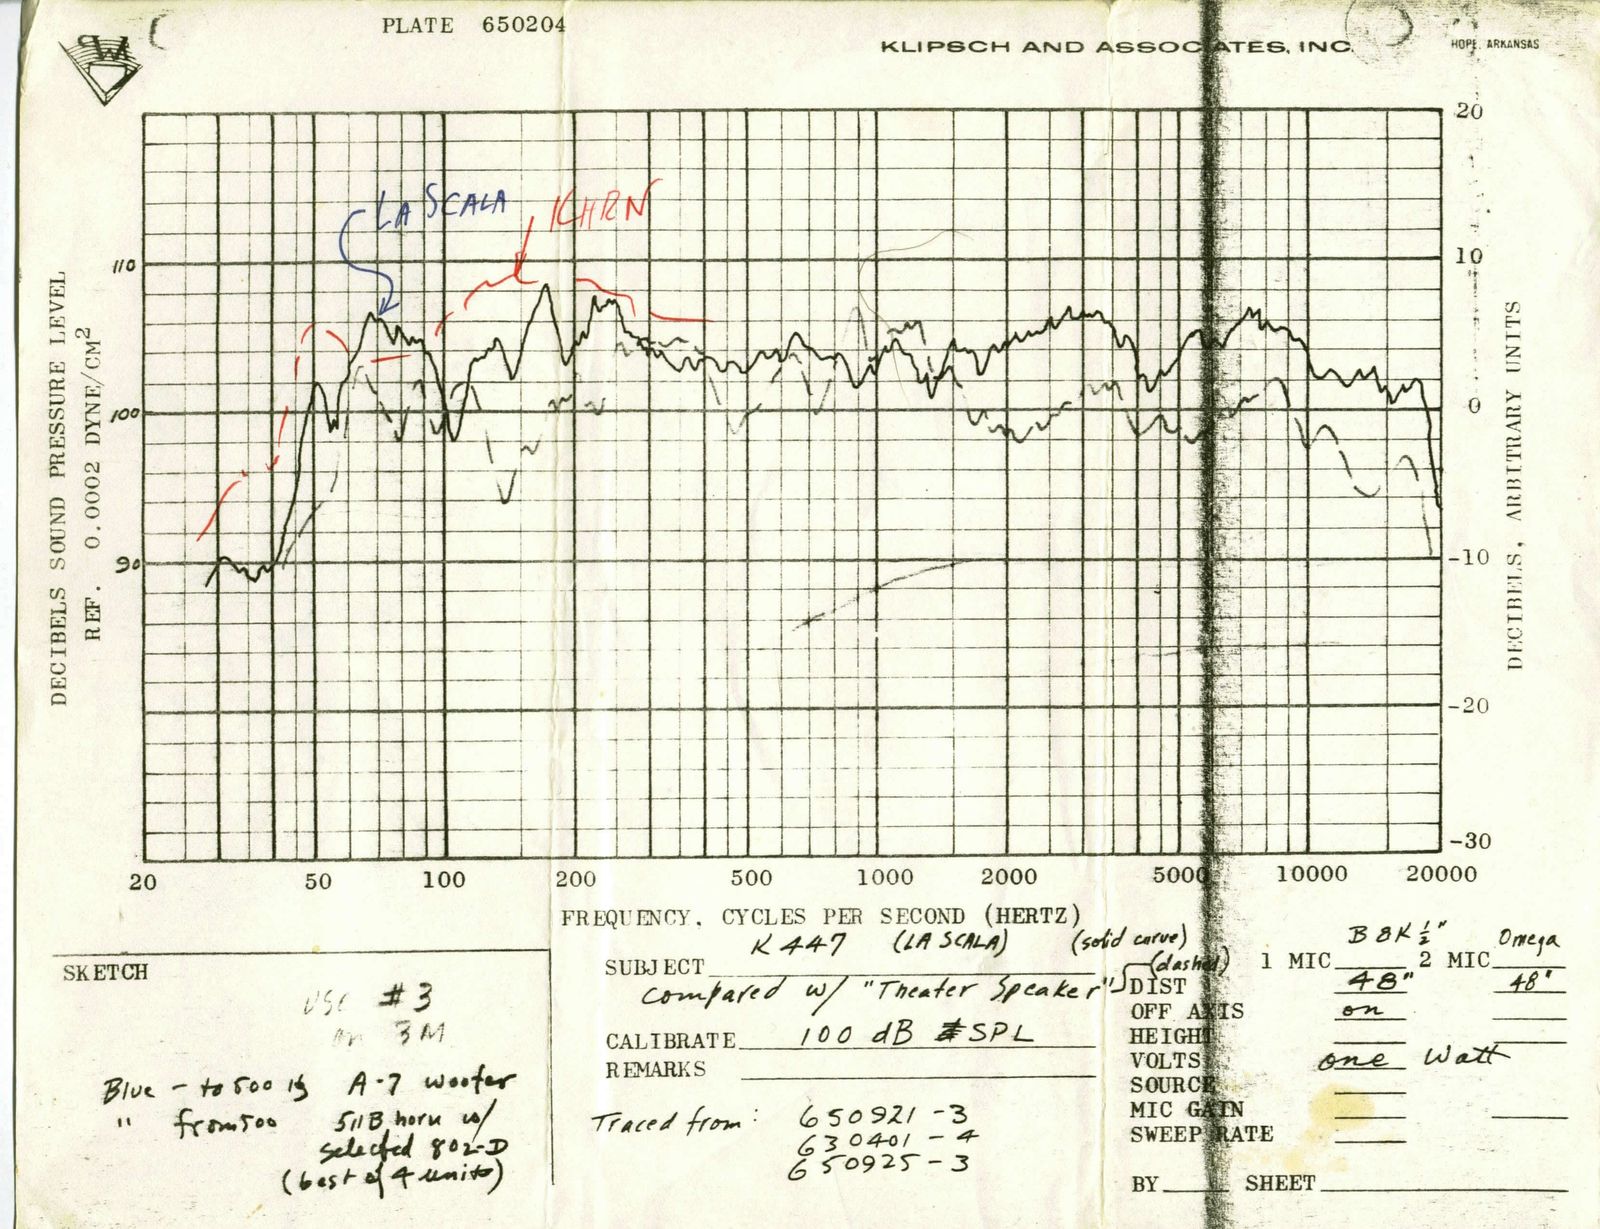 PLATE 650204
KLIPSCH AND ASSOCIATES, INC.
HOPE, ARKANSAS
20
10
0
-10
-20
-30
DECIBELS, ARBITRARY UNITS
110
100
90
DECIBELS SOUND PRESSURE LEVEL
REF. 0.0002 DYNE/CM2
LA SCALA
KHRN
20 50 100 200 500 1000 2000 5000 10000 20000
FREQUENCY, CYCLES PER SECOND (HERTZ)
SKETCH
USE #3
on 3M
Blue - to 500 is A-7 woofer
" from 500 511B horn w/
selected 802-D
(best of 4 units)
SUBJECT K 447 (LA SCALA) (solid curve)
compared w/ "Theater Speaker" (dashed)
CALIBRATE 100 dB SPL
REMARKS
Traced from: 650921-3
630401-4
650925-3
B&K ½" Omega
1 MIC 2 MIC
DIST 48" 48"
OFF AXIS on
HEIGHT
VOLTS one Watt
SOURCE
MIC GAIN
SWEEP RATE
BY SHEET